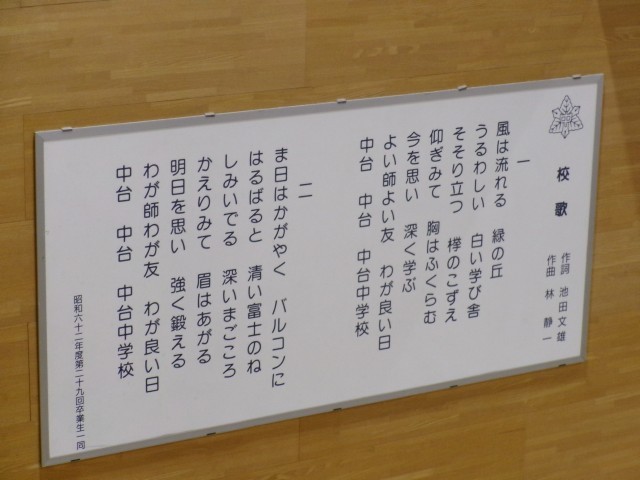 校歌
作詞 池田文雄
作曲 林 静一
一
風は流れる 緑の丘
うるわしい 白い学び舎
そそり立つ 欅のこずえ
仰ぎみて 胸はふくらむ
今を思い 深く学ぶ
よい師よい友 わが良い日
中台 中台 中台中学校
二
ま日はかがやく バルコンに
はるばると 清い富士のね
しみいでる 深いまごころ
かえりみて 眉はあがる
明日を思い 強く鍛える
わが師わが友 わが良い日
中台 中台 中台中学校
昭和六十二年度第二十九回卒業生一同